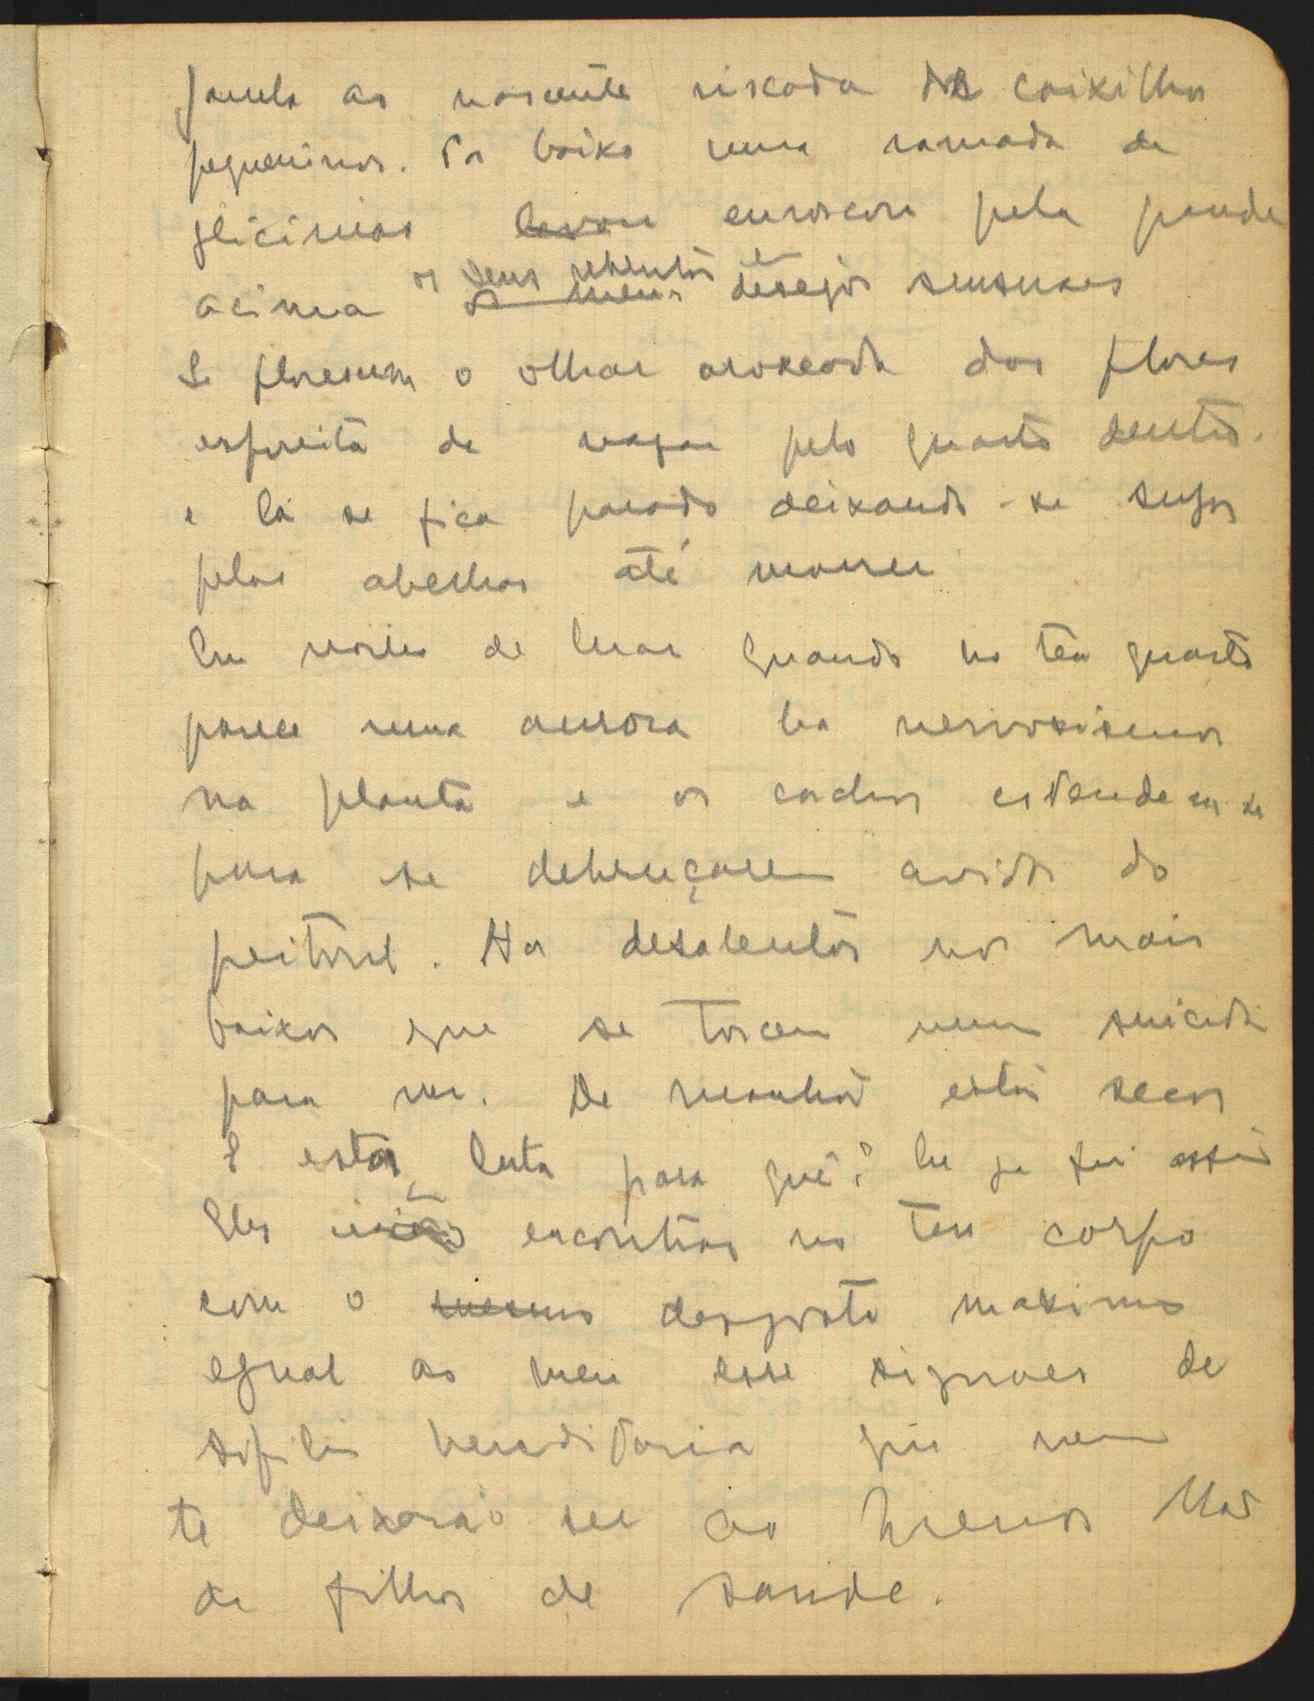 janela ao nascente riscada de caixilhos
pequeninos. Por baixo uma ramada de
glicinias levou enroscou pela parede
acima os seus rebentos e
os meus desejos sensuaes
Se floresceu o olhar aroxeado das flores
espreita de vagar pelo quarto dentro.
e lá se fica parado deixando-se sugar
pelas abelhas até morrer
Em noites de luar quando no teu quarto
parece uma aurora ha nervosismos
na planta e os cachos estendem se
para se debruçarem avidos do
peitoril. Ha desalentos nos mais
baixos que se torcem num suicidio
para ver. De manhã estão secos
E esta luta para quê? Eu ja fui assim
Eles encontrar no teu corpo
com o mesmo desgosto maximo
egual ao meu esse signaes de
sifilis hereditaria que nem
te deixarão ser ao menos Mãe
de filhos de saude.